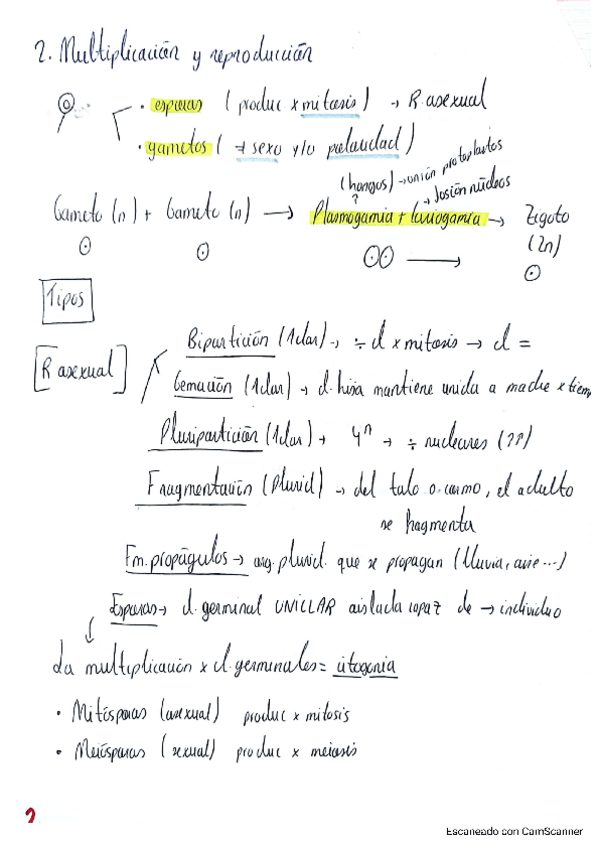 2. Multiplicación y reproducción
· esporas ( produc x mitosis ) → R. asexual
· gametos ( ≠ sexo y/o polaridad )
(hongos) → unión protoplastos
→ fusión núcleos
Gameto (n) + Gameto (n) → Plasmogamia + Cariogamia → Zigoto
(2n)
Tipos
R asexual
Bipartición (1clar) → ÷ cl x mitosis → cl =
Gemación (1clar) → cl. hija mantiene unida a madre x tiem
Pluripartición (1clar) → 4ⁿ → ÷ nucleares (??)
Fragmentación (pluricl) → del talo o cormo, el adulto
se fragmenta
Fm. propágulos → org. pluricl. que se propagan (lluvia, aire...)
Esporas → cl. germinal UNICLAR aislada capaz de → individuo
La multiplicación x cl. germinales = citogonia
· Mitósporas (asexual) produc x mitosis
· Meiósporas (sexual) produc x meiosis
2
Escaneado con CamScanner